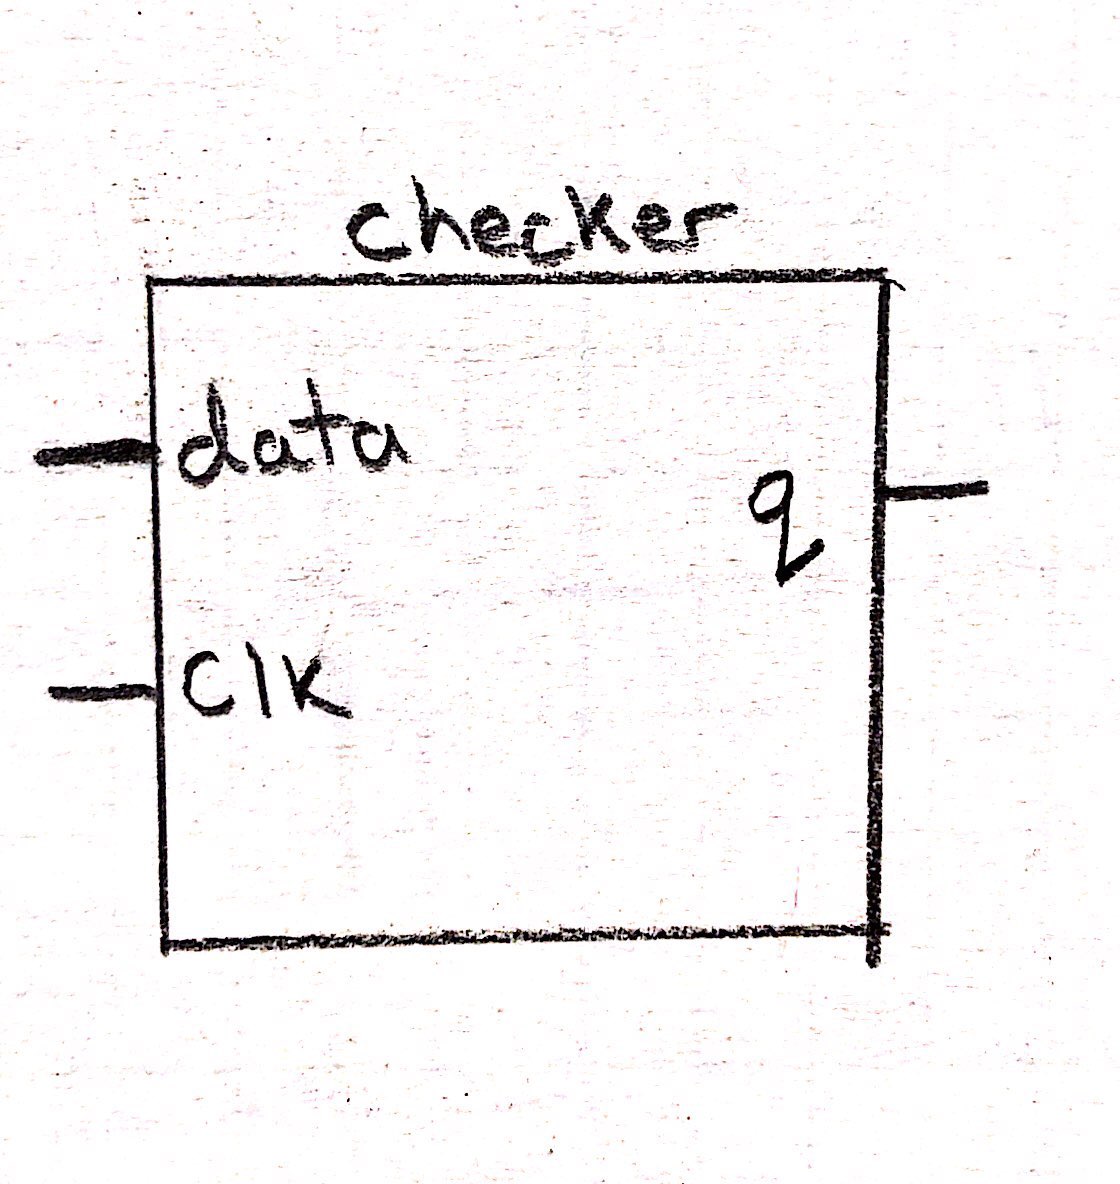 checker
data
q
clk